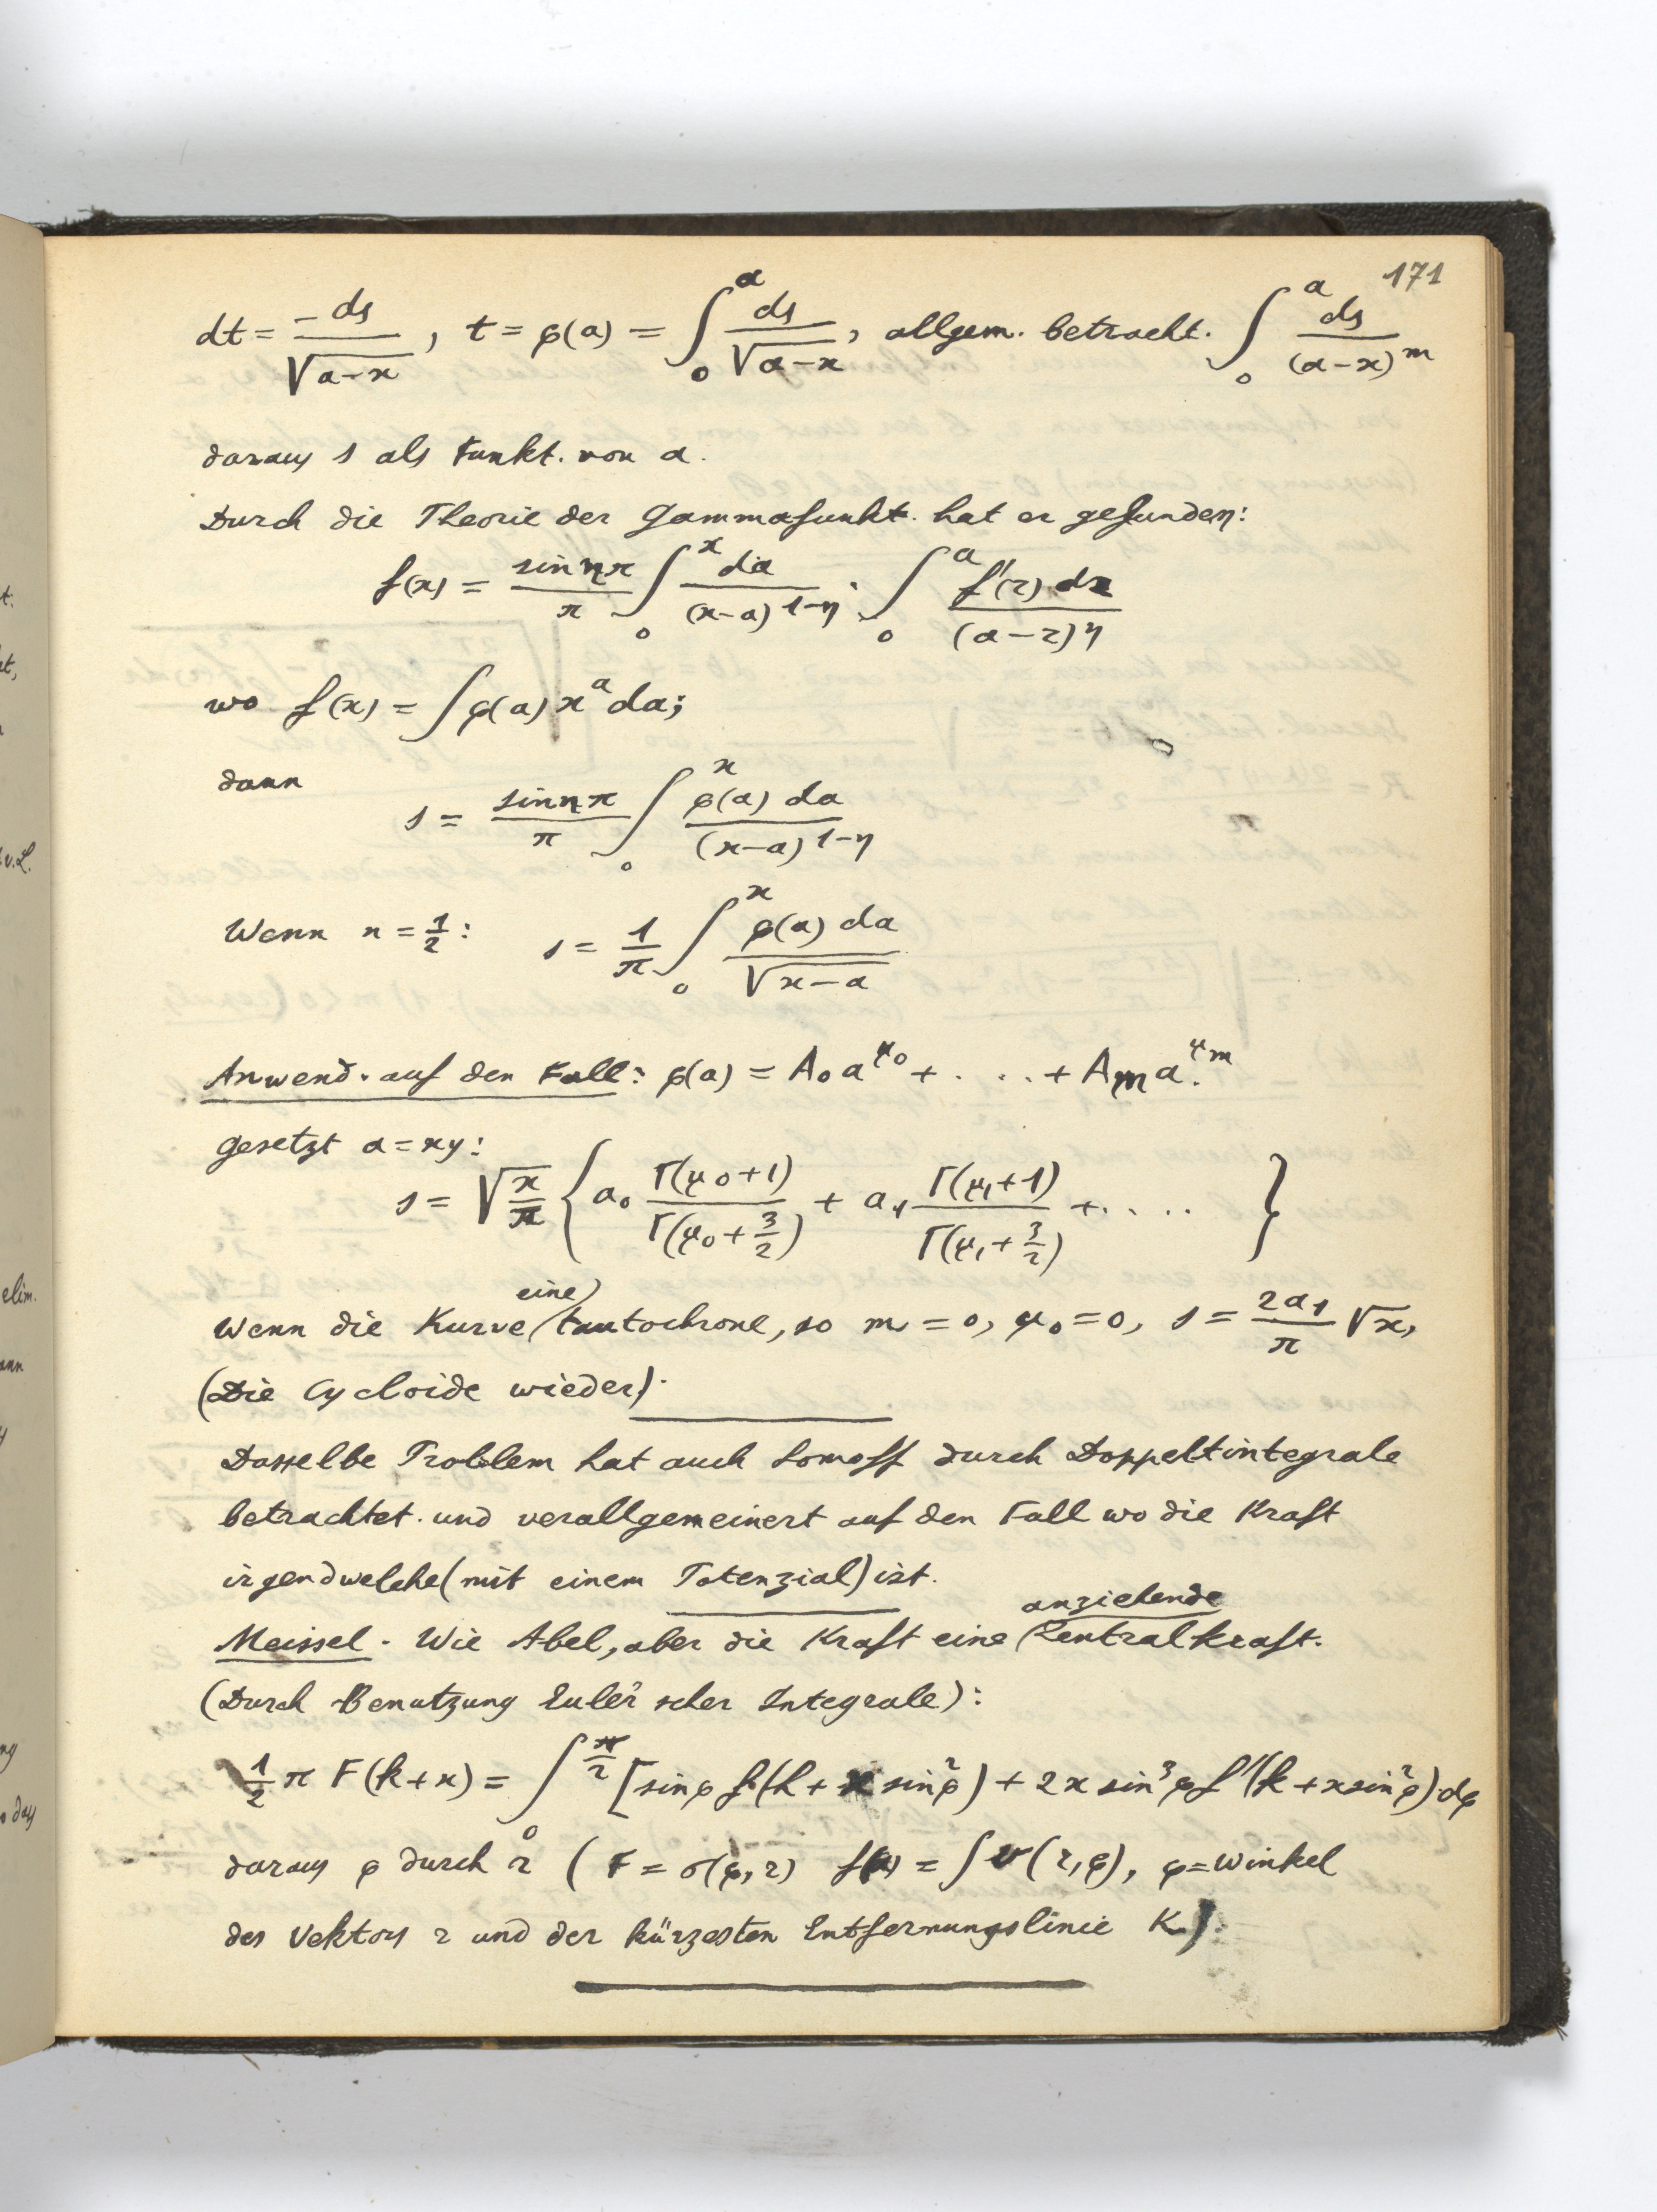 171
dt = -ds/√(a-x), t = φ(a) = ∫₀ᵃ ds/√(a-x), allgem. betracht. ∫₀ᵃ ds/(a-x)ᵐ
daraus s als Funkt. von a.
Durch die Theorie der Gammafunkt. hat er gefunden:
f(x) = sin nπ/π ∫₀ˣ da/(x-a)¹⁻ⁿ · ∫₀ᵃ f'(z) dz/(a-z)ⁿ
wo f(x) = ∫φ(a) xᵃ da;
dann
s = sin nπ/π ∫₀ˣ φ(a) da/(x-a)¹⁻ⁿ
Wenn n = 1/2: s = 1/π ∫₀ˣ φ(a) da/√(x-a)
Anwend. auf den Fall: φ(a) = A₀a^μ₀ + . . . . + Aₘa^μₘ.
gesetzt a = xy:
s = √(x/π) { a₀ Γ(μ₀+1)/Γ(μ₀+3/2) + a₁ Γ(μ₁+1)/Γ(μ₁+3/2) + . . . . }
Wenn die Kurve eine tautochrone, so m = 0, μ₀ = 0, s = 2a₁/π √x,
(Die Cycloide wieder).
Dasselbe Problem hat auch Somoff durch Doppeltintegrale
betrachtet und verallgemeinert auf den Fall wo die Kraft
irgendwelche (mit einem Potenzial) ist.
Meissel. Wie Abel, aber die Kraft eine anziehende Zentralkraft.
(Durch Benutzung Euler'scher Integrale):
1/2 π F(k+x) = ∫₀^(π/2) [sinφ f(k + x sin²φ) + 2x sin³φ f'(k + x sin²φ)·dφ
daraus φ durch r ( F = σ(φ, r) f(x) = ∫v(r, φ), φ = Winkel
des Vektors r und der kürzesten Entfernungslinie K).